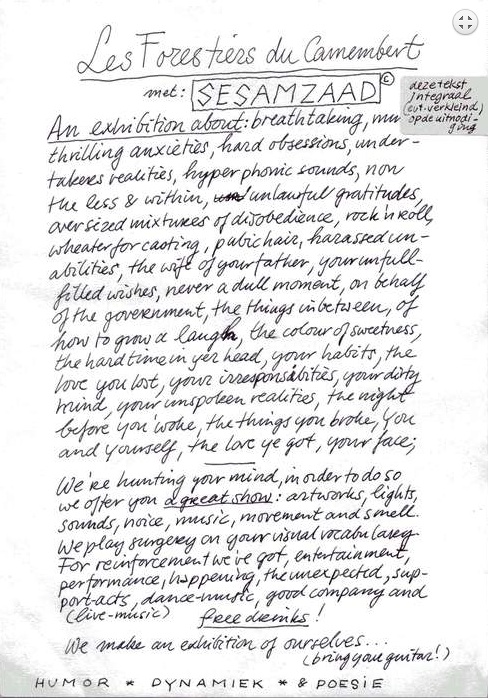 Les Forestiers du Camembert
met: SESAMZAAD ©
deze tekst
integraal
(evt. verkleind)
op de uitnodi-
ging
An exhibition about: breathtaking,
thrilling anxieties, hard obsessions, under-
takeres realities, hyper phonic sounds, non
the less & within, unlawful gratitudes,
oversized mixtures of disobedience, rock'n roll,
wheater for casting, pubic hair, harassed un-
abilities, the wife of your father, your unfull-
filled wishes, never a dull moment, on behalf
of the government, the things inbetween, of
how to grow a laugh, the colour of sweetness,
the hard time in yer head, your habits, the
love you lost, your irresponsabilities, your dirty
mind, your unspoken realities, the night
before you woke, the things you broke, you
and yourself, the love ye got, your face;
We're hunting your mind, in order to do so
we offer you a great show: artworks, lights,
sounds, noice, music, movement and smell.
We play surgery on your visual vocabulary
For reinforcement we've got, entertainment,
performance, happening, the unexpected, sup-
port-acts, dance-music, good company and
(live-music) free drinks!
We make an exhibition of ourselves...
(bring your guitar!)
HUMOR * DYNAMIEK * & POESIE